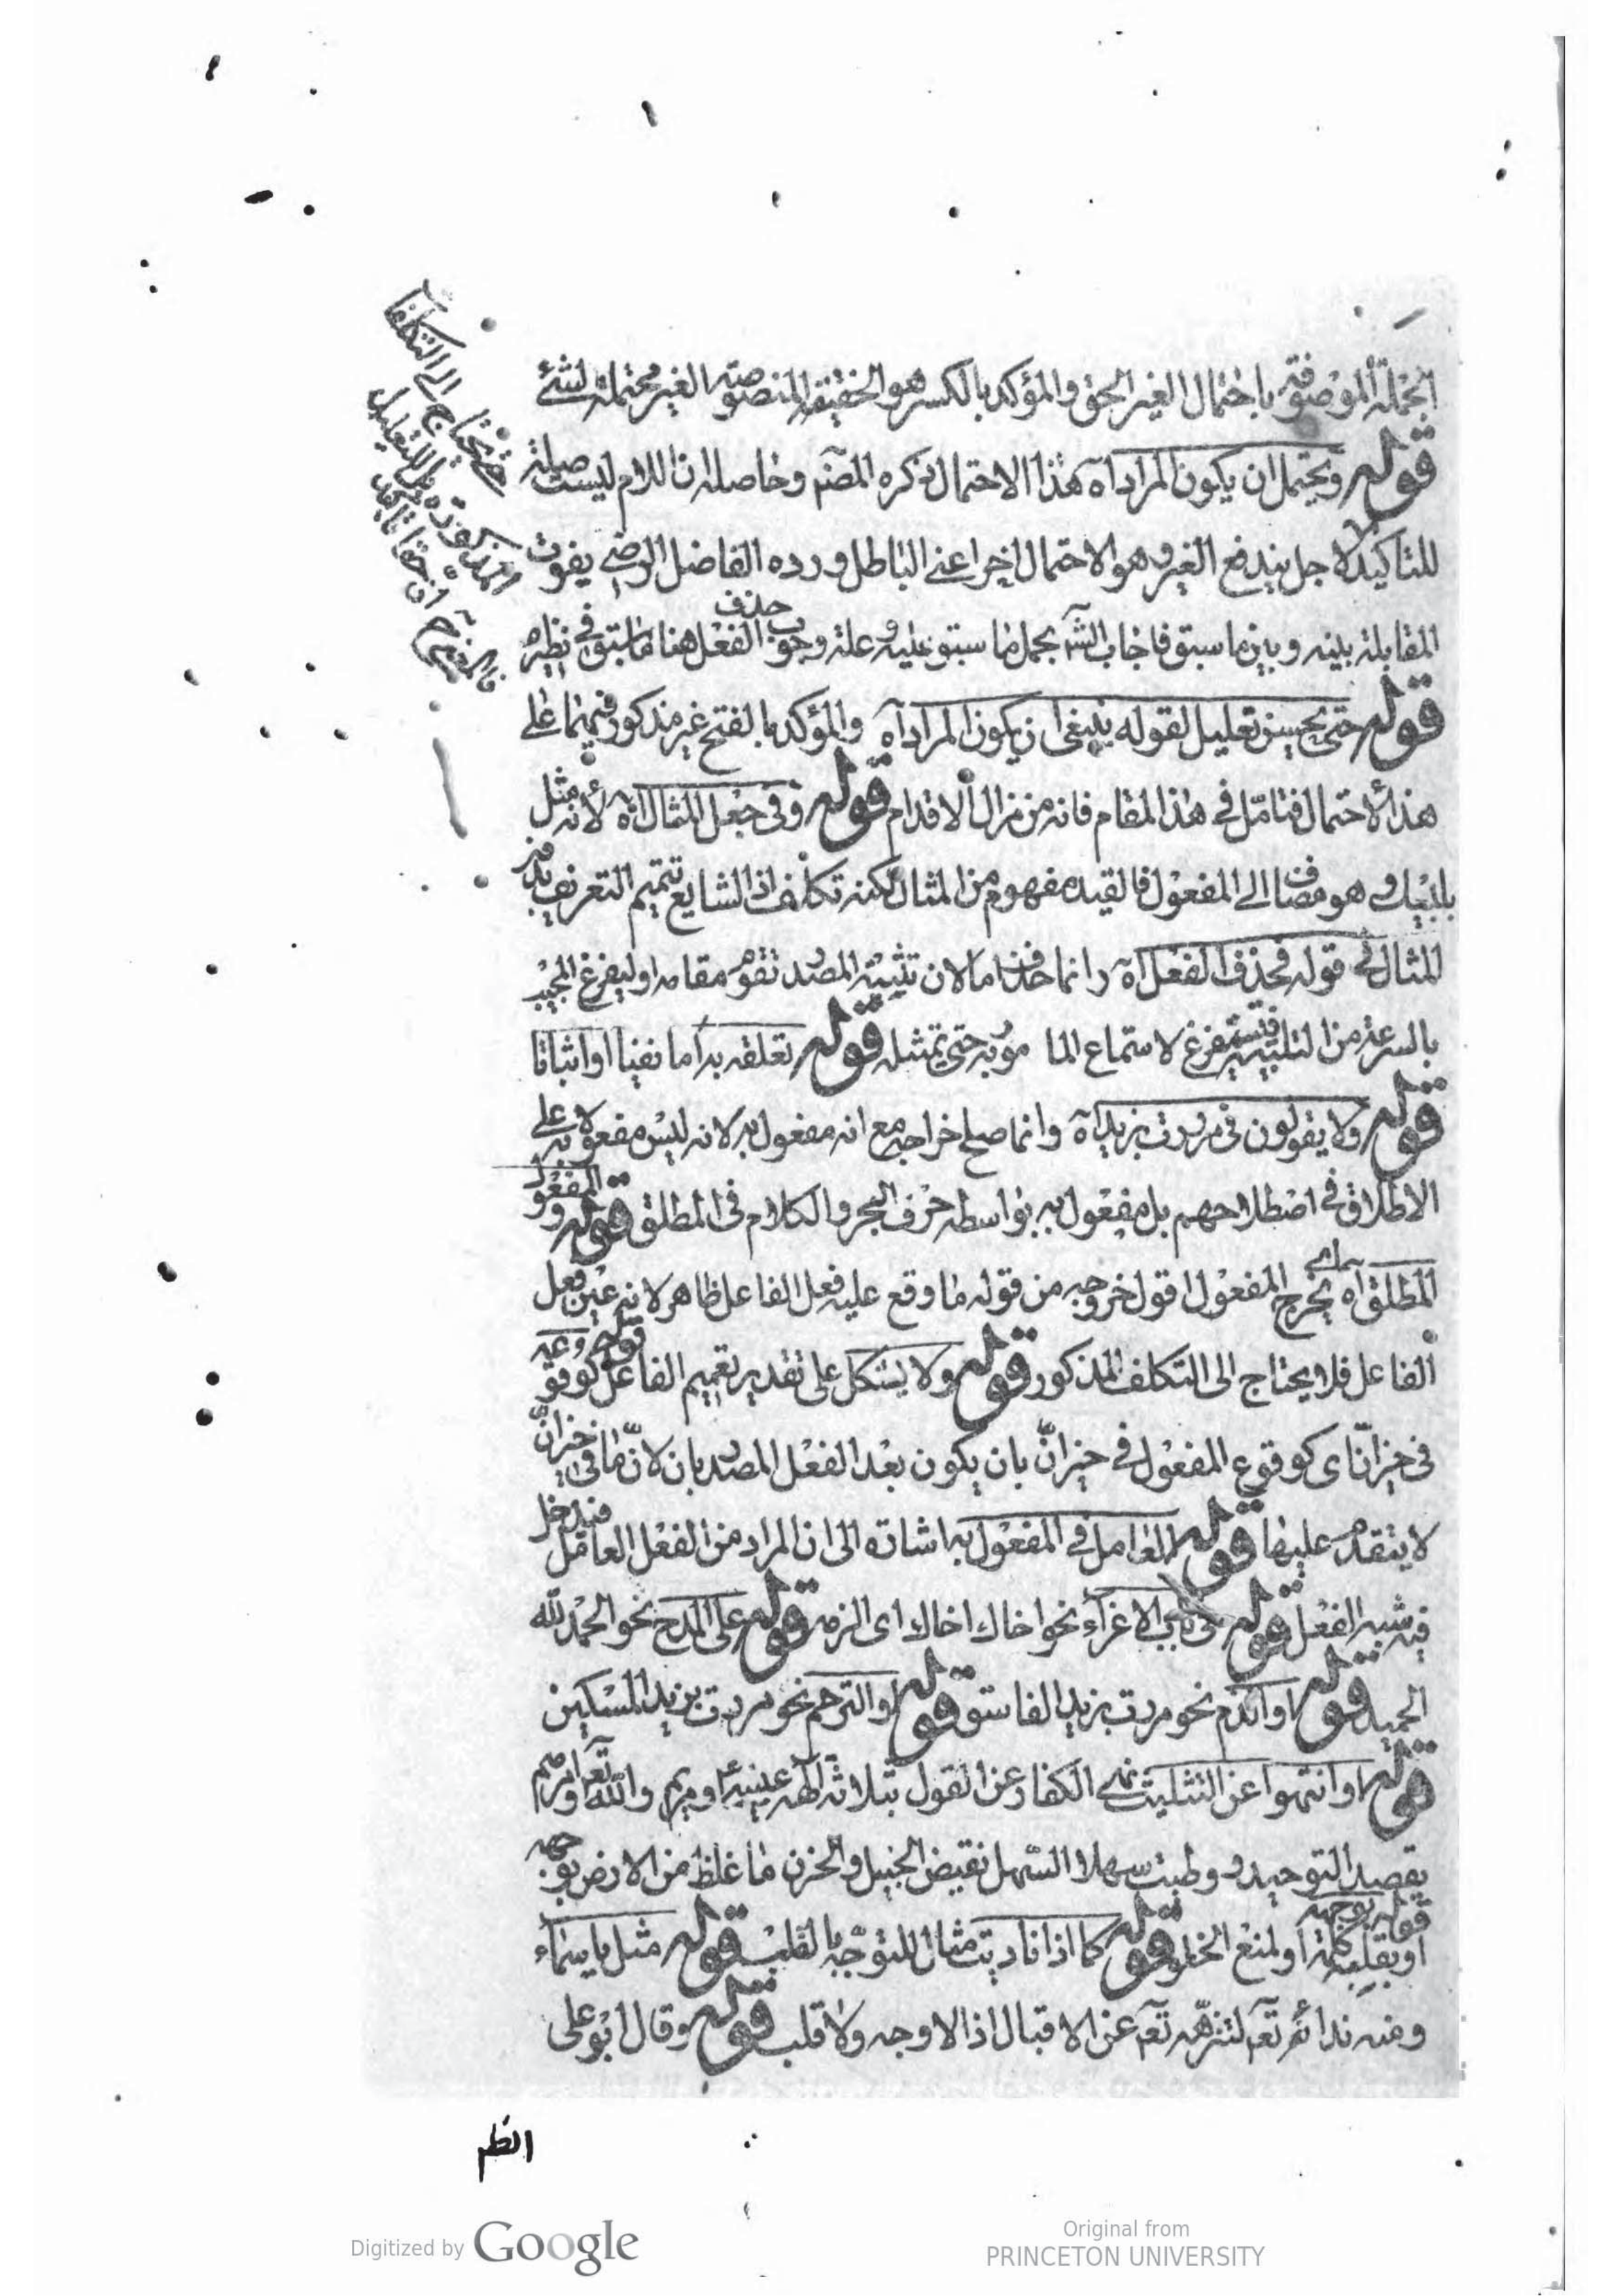 الجملة الموصوفة باحتمال الغير الحق والمؤكد بالكسر هو الحقيقة المنصوصة الغير محتملة لشئ
قوله ويحتمل ان يكون المراد اه هذا الاحتمال ذكره المصنم وحاصله ان اللام ليست صلة
للتاكيد لاجل يندفع الغير وهو الاحتمال اخر اعنى الباطل ورده الفاضل الرضى يفوت
المقابلة بينه وبين ما سبق فاجاب الش بجمل ما سبق عليه و علة وجوب حذف الفعل هنا ما سبق فى نظيره
قوله حتى يحسن تعليل لقوله ينبغى ان يكون المراد اه والمؤكد بالفتح غير مذكور فيهما على
هذا الاحتمال فتامّل فى هذا المقام فانه من مزال الاقدام قوله وفى جعل المثال اه لانه مثل
بلبيك وهو مضاف الى المفعول فالقيد مفهوم من المثال لكنه تكلف اذ الشايع تتميم التعريف بدون
المثال قوله فحذف الفعل اه وانما حذف اما لان تثنية المصدر تقوم مقامه او ليفرغ المجيب
بالسرعة من التلبية فيتفرغ لاستماع الما موربه حتى يمتثله قوله تعلقه به اما نفيا او اثباتا
قوله ولا يقولون فى مررت بزيد اه وانما صح اخراجه مع انه مفعول به لانه ليس مفعولا به على
الاطلاق فى اصطلاحهم بل مفعول به بواسطه حرف الجر والكلام فى المطلق قوله والمفعول
المطلق اه يخرج المفعول اقول خروجه من قوله ما وقع عليه فعل الفاعل ظاهر لانه عين فعل
الفاعل فلا يحتاج الى التكلف المذكور قوله ولا يشكل على تقدير تعميم الفاعل قوله كوقوعه
فى خيز انّ اى كوقوع المفعول فى حيز انّ بان يكون بعد الفعل المصدر بان لانّ ما فى حيز انّ
لا يتقدم عليها قوله العامل فى المفعول به اشارة الى ان المراد من الفعل العامل فيدخل
فيه شبه الفعل قوله على باب الاغراء نحو اخاك اخاك اى الزم قوله على المدح نحو الحمد لله
الحميد قوله او الذم نحو مررت بزيد الفاسق قوله او الترحم نحو مررت بزيد المسكين
قوله او انتهوا عن التثليث نهى الكفار عن القول بثلاثة الهة عيسى و مريم والله تعم او امرهم
بقصد التوحيد ووطيت سهلا السّهل نقيض الجبل والحزن ما غلظ من الارض قوله بوجهه
او بقلبه كلمة او لمنع الخلو قوله كما اذا ناديت مثال للتوجّه بالقلب قوله مثل يا سماء
ومنه ندائه تعم لتنزهه تعم عن الاقبال اذ لا وجه ولا قلب قوله وقال ابو على
حتى يحتاج الى التكلفات
المذكورة بل للتعليل
Digitized by Google
Original from
PRINCETON UNIVERSITY